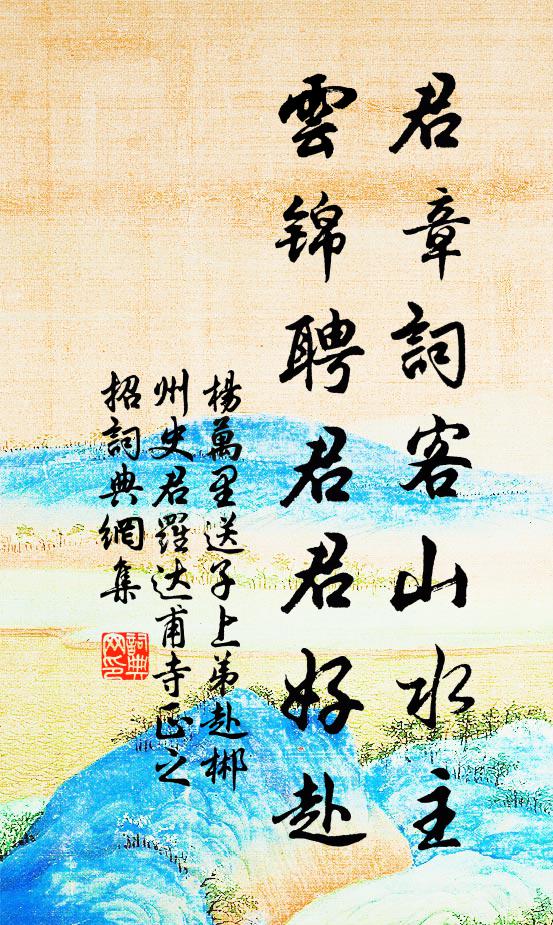 君章詞客山水主
雲錦聘君君好赴
楊萬里送子上弟赴郴
州史君羅达甫寺正之
招詞典網集
詞典
网印